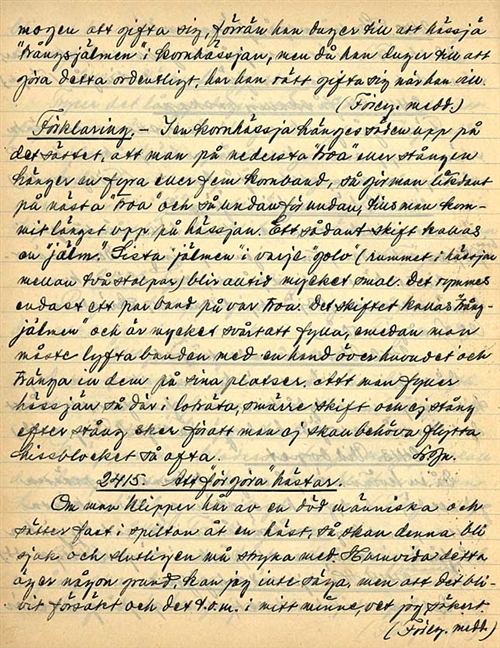 mogen att gifta sig, förrän han duger till att hässja
"trängsjälmen" i kornhässjan, men då han duger till att
göra detta ordentligt, har han rätt gifta sig när han vill.
(Föreg. medd.)
Förklaring. - I en kornhässja hänges säden upp på
det sättet, att man på nedersta "troa" eller stången
hänger en fyra eller fem kornband, så gör man likadant
på nästa "troa" och så undan för undan, tills man kom-
mit längst upp på hässjan. Ett sådant skift kallas
en "jälm". Sista "jälmen" i varje "golv" (rummet i hässjan
mellan två stolpar) blir alltid mycket smal. Det rymmes
endast ett par band på var troa. Det skiftet kallas "träng-
jälmen" och är mycket svårt att fylla, emedan man
måste lyfta banden med en hand över huvudet och
tränga in dem på sina platser. Att man fyller
hässjan så där i lodräta, smärre skift och ej stång
efter stång sker för att man ej skall behöva flytta
hissblocket så ofta.
2415. Att "förgöra" hästar.
Om man klipper hår av en död människa och
sätter fast i spiltan åt en häst, så skall denna bli
sjuk och slutligen må stryka med. Huruvida detta
äger någon grund, kan jag inte säga, men att det bli-
vit försökt och det t.o.m. i mitt minne, vet jag säkert.
(Föreg. medd.)